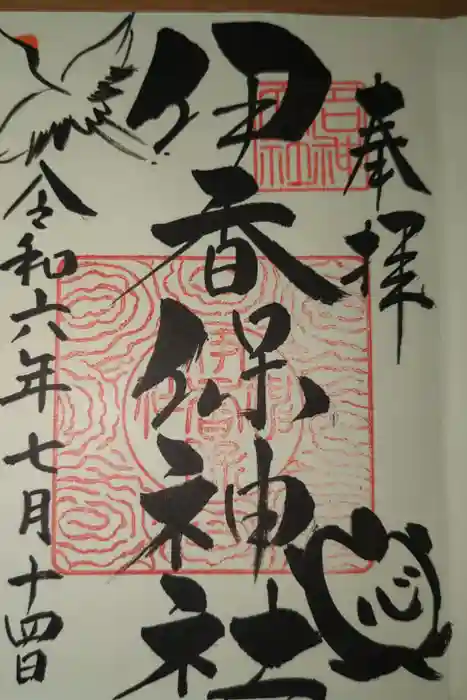 奉拝
伊香保神社
心
令和六年七月十四日